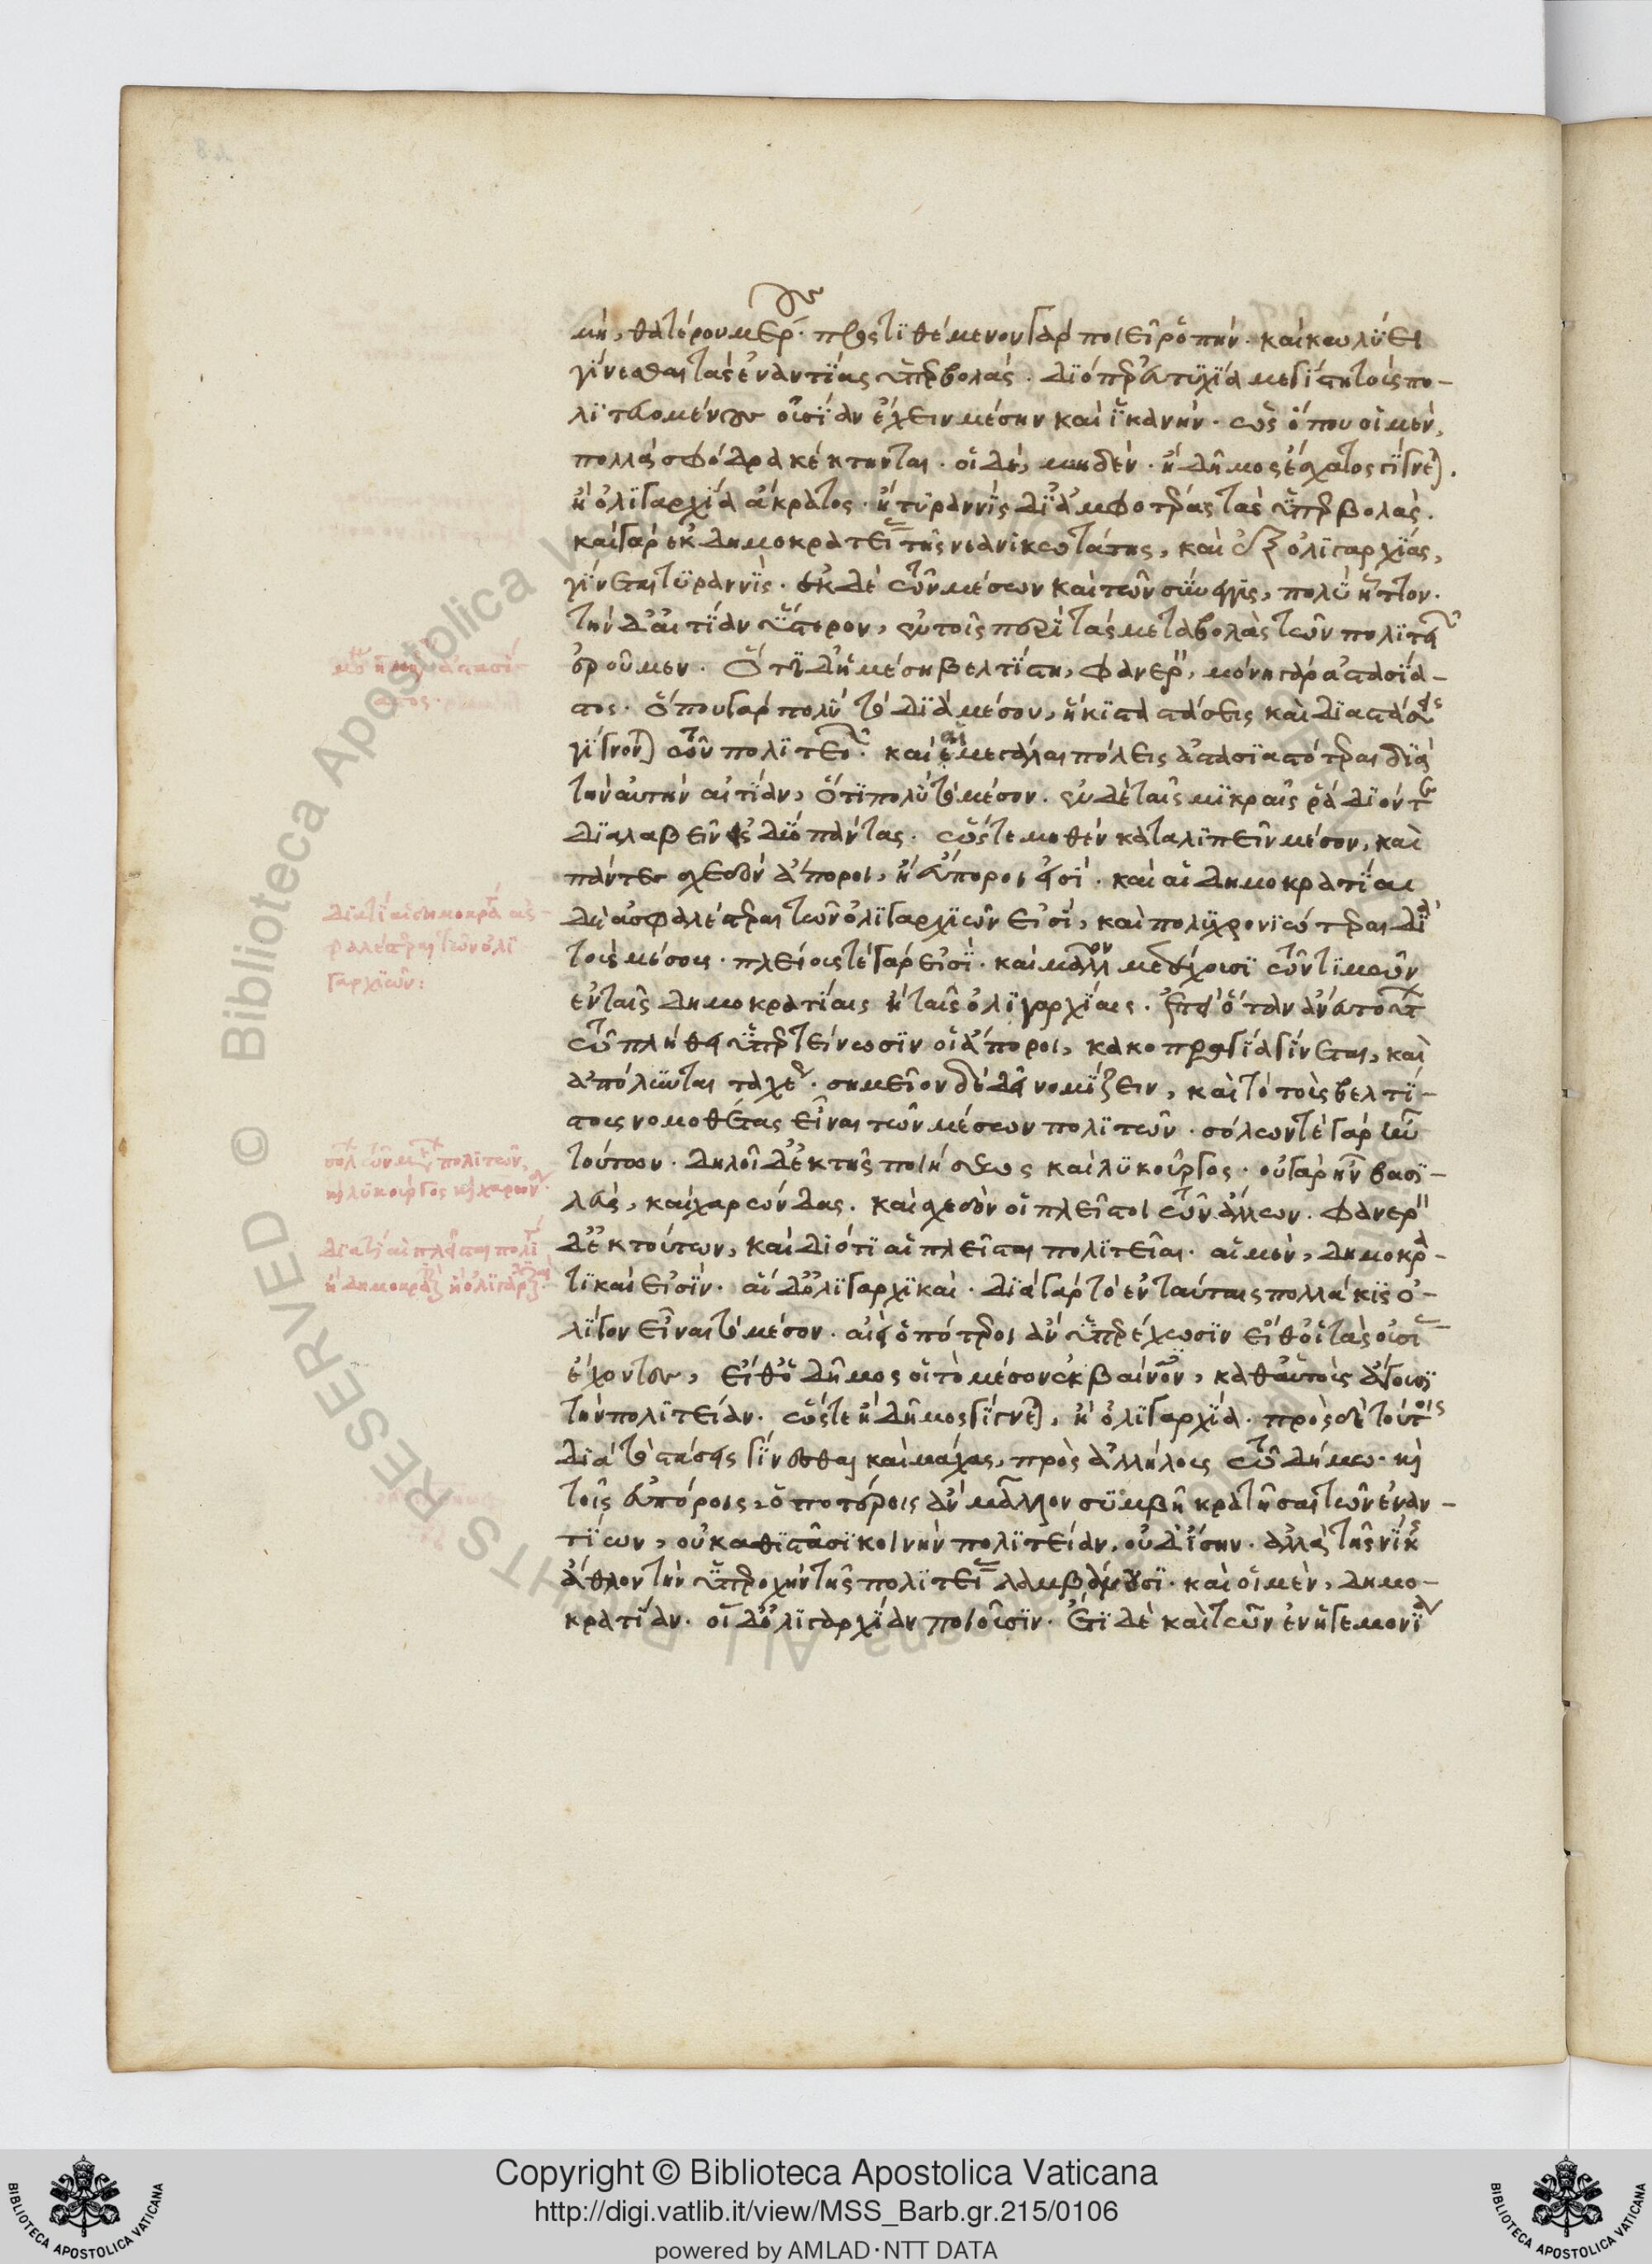 μὴ, θατέρου μέρους. προστιθέμενον γὰρ ποιεῖ ῥοπήν. καὶ κωλύει
γίνεσθαι τὰς ἐναντίας ὑπερβολάς. διόπερ εὐτυχία μεγίστη τοῖς πο-
λιτευομένοις οὐσίαν ἔχειν μέσην καὶ ἱκανήν. ὡς ὅπου οἱ μὲν,
πολλὰ σφόδρα κέκτηνται. οἱ δὲ, μηδέν. ἢ δῆμος ἔσχατος γίγνεται.
ἢ ὀλιγαρχία ἄκρατος. ἢ τυραννὶς δι' ἀμφοτέρας τὰς ὑπερβολάς.
καὶ γὰρ ἐκ δημοκρατείας τῆς νεανικωτάτης, καὶ ἐξ ὀλιγαρχίας,
γίνεται τυραννίς. ἐκ δὲ τῶν μέσων καὶ τῶν σύνεγγυς, πολὺ ἧττον.
τὴν δ' αἰτίαν ὕστερον, ἐν τοῖς περὶ τὰς μεταβολὰς τῶν πολιτειῶν
ἐροῦμεν. Ὅτι δ' ἡ μέση βελτίστη, φανερόν, μόνη γὰρ ἀστασία-
στος. ὅπου γὰρ πολὺ τὸ διὰ μέσου, ἥκιστα στάσεις καὶ διαστάσεις
γίγνονται τῶν πολιτειῶν. καὶ αἱ μεγάλαι πόλεις ἀστασιαστότεραι διὰ
τὴν αὐτὴν αἰτίαν, ὅτι πολὺ τὸ μέσον. ἐν δὲ ταῖς μικραῖς ῥᾴδιόν τε
διαλαβεῖν εἰς δύο πάντας. ὥστε μηθὲν καταλιπεῖν μέσον, καὶ
πάντες σχεδὸν ἄποροι, ἢ εὔποροί εἰσι. καὶ αἱ δημοκρατίαι
δὲ ἀσφαλέστεραι τῶν ὀλιγαρχιῶν εἰσὶ, καὶ πολυχρονιώτεραι διὰ
τοὺς μέσους. πλείους τε γάρ εἰσι. καὶ μᾶλλον μετέχουσι τῶν τιμῶν
ἐν ταῖς δημοκρατίαις ἢ ταῖς ὀλιγαρχίαις. ἐπεὶ ὅταν ἄνευ τούτων
τῷ πλήθει ὑπερτείνωσιν οἱ ἄποροι, κακοπραγία γίνεται, καὶ
ἀπόλλυνται ταχέως. σημεῖον δὲ δεῖ νομίζειν, καὶ τὸ τοὺς βελτί-
στους νομοθέτας εἶναι τῶν μέσων πολιτῶν. σόλων τε γὰρ ἦν
τούτων. δηλοῖ δ' ἐκ τῆς ποιήσεως καὶ λυκοῦργος. οὐ γὰρ ἦν βασι-
λεύς, καὶ χαρώνδας. καὶ σχεδὸν οἱ πλεῖστοι τῶν ἄλλων. φανερὸν
δ' ἐκ τούτων, καὶ διότι αἱ πλεῖσται πολιτεῖαι. αἱ μὲν, δημοκρα-
τικαί εἰσιν. αἱ δ' ὀλιγαρχικαί. διὰ γὰρ τὸ ἐν ταύταις πολλάκις ὀ-
λίγον εἶναι τὸ μέσον. αἰεὶ ὁπότεροι ἂν ὑπερέχωσιν εἴθ' οἱ τὰς οὐσίας
ἔχοντες, εἴθ' ὁ δῆμος οἱ τὸ μέσον ἐκβαίνοντες, καθ' αὑτοὺς ἄγουσι
τὴν πολιτείαν. ὥστε ἢ δῆμος γίγνεται, ἢ ὀλιγαρχία. πρὸς δὲ τούτοις
διὰ τὸ στάσεις γίνεσθαι καὶ μάχας, πρὸς ἀλλήλους τῷ δήμῳ. καὶ
τοῖς εὐπόροις, ὁποτέροις ἂν μᾶλλον συμβῇ κρατῆσαι τῶν ἐναν-
τίων, οὐ καθιστᾶσι κοινὴν πολιτείαν, οὐδ' ἴσην. ἀλλὰ τῆς νίκης
ἆθλον τὴν ὑπεροχὴν τῆς πολιτείας λαμβάνουσι. καὶ οἱ μὲν, δημο-
κρατίαν. οἱ δ' ὀλιγαρχίαν ποιοῦσιν. Ἔτι δὲ καὶ τῶν ἐν ἡγεμονίᾳ
διατί αἱ δημοκρατίαι ἀσ-
φαλέστεραι τῶν ὀλι
γαρχιῶν:
σόλων τῶν μέσων πολιτῶν,
καὶ λυκοῦργος καὶ χαρώνδας.
διατί αἱ πλεῖσται πολιτεῖαι
ἢ δημοκρατικαὶ ἢ ὀλιγαρχικαί.
Copyright © Biblioteca Apostolica Vaticana
http://digi.vatlib.it/view/MSS_Barb.gr.215/0106
powered by AMLAD·NTT DATA
BIBLIOTECA APOSTOLICA VATICANA
BIBLIOTECA APOSTOLICA VATICANA